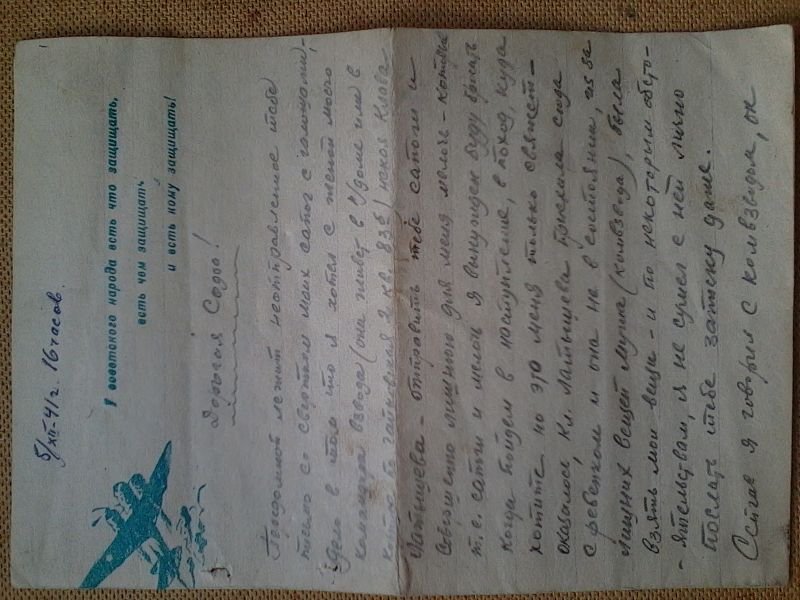 5/XII-41г. 16 часов.
У советского народа есть что защищать,
есть чем защищать
и есть кому защищать!
Дорогая Содоб!
Предомной лежит неотправленное тебе
письмо со свертком моих сапог с галошами,
дело в том что я хотел с женой моего
командира взвода (она живет в Удоме или в
кв. 83) некоя Клава
Латышева - отправить тебе сапоги и
совершенно лишнюю для меня мелочь - которые
т.е. сапоги и мелочь я вынужден буду бросать
когда пойдем в наступление, в поход, куда
хотите но это меня только свяжет -
оказалось, Кл. Латышева приехала сюда
с ребенком и она не в состоянии, из за
лишних вещей мужа (комвзвода), была
взять мои вещи - и по некоторым обсто-
-ятельствам, я не сумел с ней лично
послать тебе записку даже.
Сейчас я говорил с комвзводом, он